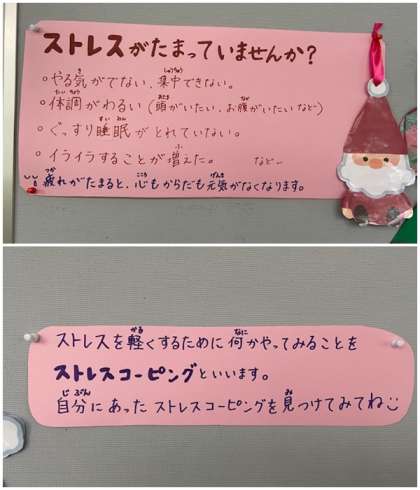 ストレスがたまっていませんか?
○やる気がでない、集中できない。
○体調がわるい（頭がいたい、お腹がいたいなど）
○ぐっすり睡眠がとれていない。
○イライラすることが増えた。 など
疲れがたまると、心もからだも元気がなくなります。
ストレスを軽くするために何かやってみることを
ストレスコーピングといいます。
自分にあったストレスコーピングを見つけてみてね